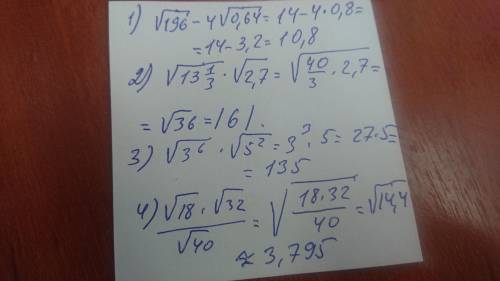 1) √196 - 4√0,64 = 14 - 4 · 0,8 =
= 14 - 3,2 = 10,8
2) √13 1/3 · √2,7 = √40/3 · 2,7 =
= √36 = |6|.
3) √3⁶ · √5² = 3³ · 5 = 27 · 5 =
= 135
4) √18 · √32 / √40 = √18 · 32 / 40 = √14,4
≈ 3,795